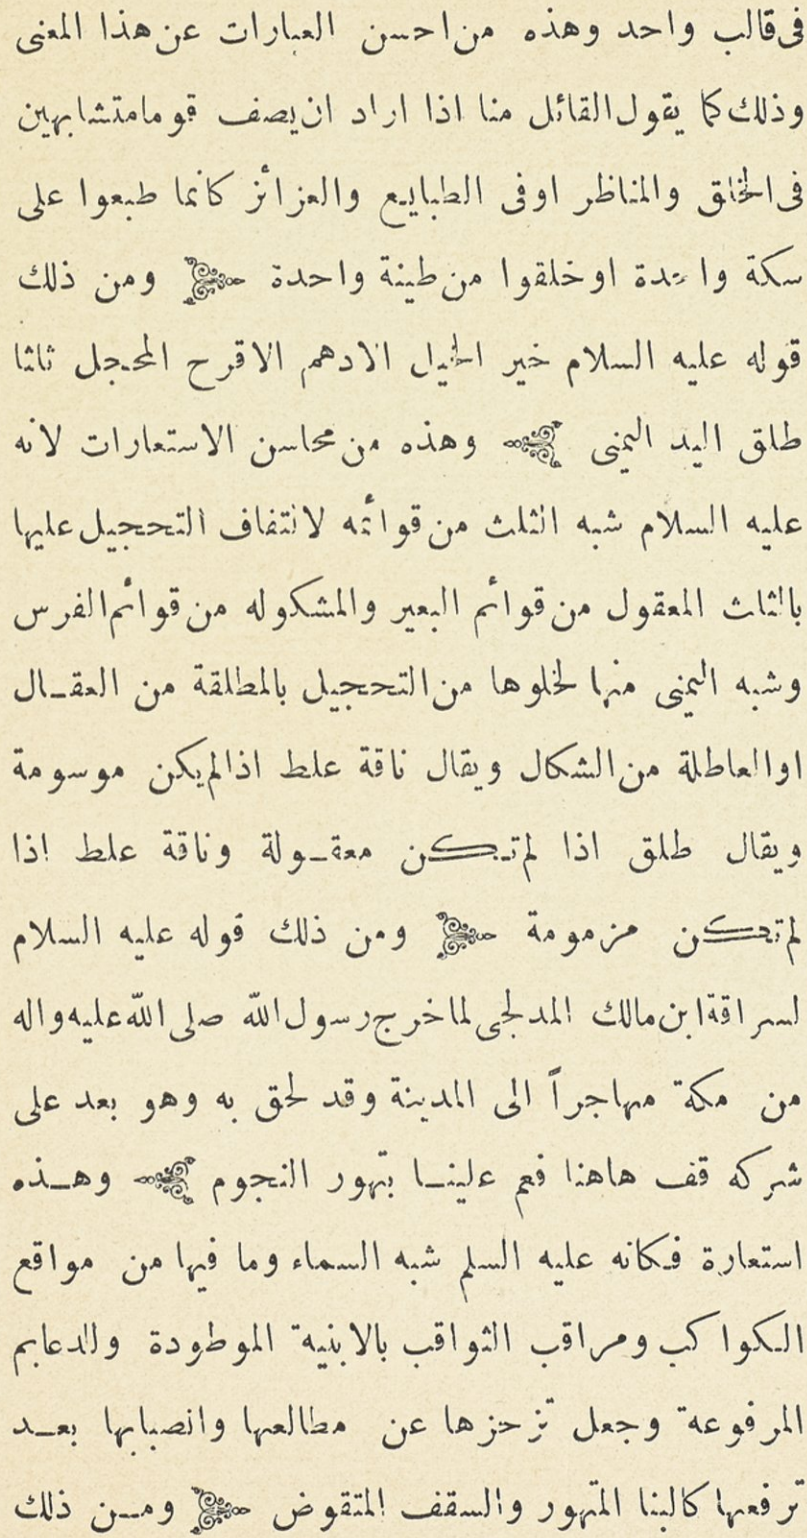 فى قالب واحد وهذه من احسن العبارات عن هذا المعنى
وذلك كما يقول القائل منا اذا اراد ان يصف قوما متشابهين
فى الخلق والمناظر او فى الطبايع والعزائز كانما طبعوا على
سكة واحدة او خلقوا من طينة واحدة ومن ذلك
قوله عليه السلام خير الخيل الادهم الاقرح المحجل ثلثا
طلق اليد اليمنى وهذه من محاسن الاستعارات لانه
عليه السلام شبه الثلث من قوائمه لانتفاف التحجيل عليها
بالثلث المعقول من قوائم البعير والمشكوله من قوائم الفرس
وشبه اليمنى منها لخلوها من التحجيل بالمطلقة من العقال
او العاطلة من الشكال ويقال ناقة علط اذا لم يكن موسومة
ويقال طلق اذا لم تكن معقولة وناقة علط اذا
لم تكن مزمومة ومن ذلك قوله عليه السلام
لسراقة ابن مالك المدلجى لما خرج رسول الله صلى الله عليه واله
من مكة مهاجراً الى المدينة وقد لحق به وهو بعد على
شركه قف هاهنا فعم علينا بتهور النجوم وهذه
استعارة فكانه عليه السلم شبه السماء وما فيها من مواقع
الكواكب ومراقب الثواقب بالابنية الموطودة والدعايم
المرفوعة وجعل تزحزها عن مطالعها وانصبابها بعد
ترفعها كالبنا المتهور والسقف المتقوض ومن ذلك